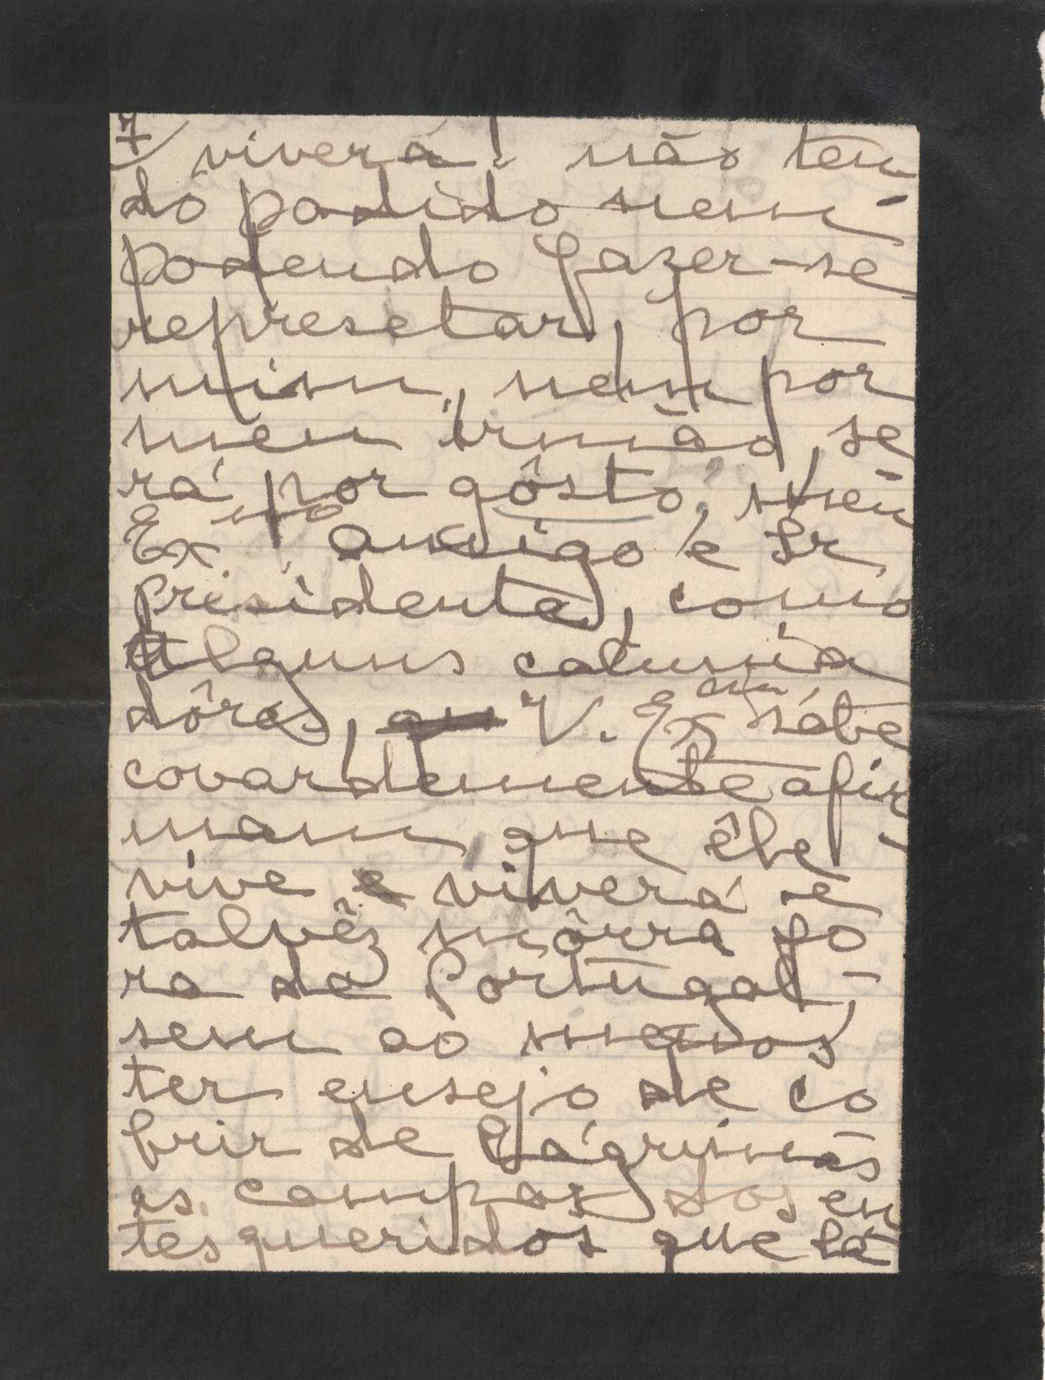 7
viverá! não ten
do podido nem-
podendo fazer-se
represetar, por
mim, nem por
meu irmão, se
rá por gôsto, meu
Exmo amigo e Sr.
presidente, como
alguns calunia
dôres, V. Exa sabe
covardemente afir
mam, que êle
vive e viverá e
talvês môrra fo
ra de Portugal,-
sem ao menos
ter ensejo de co
brir de lágrimas
as campas dos en
tes queridos que lá